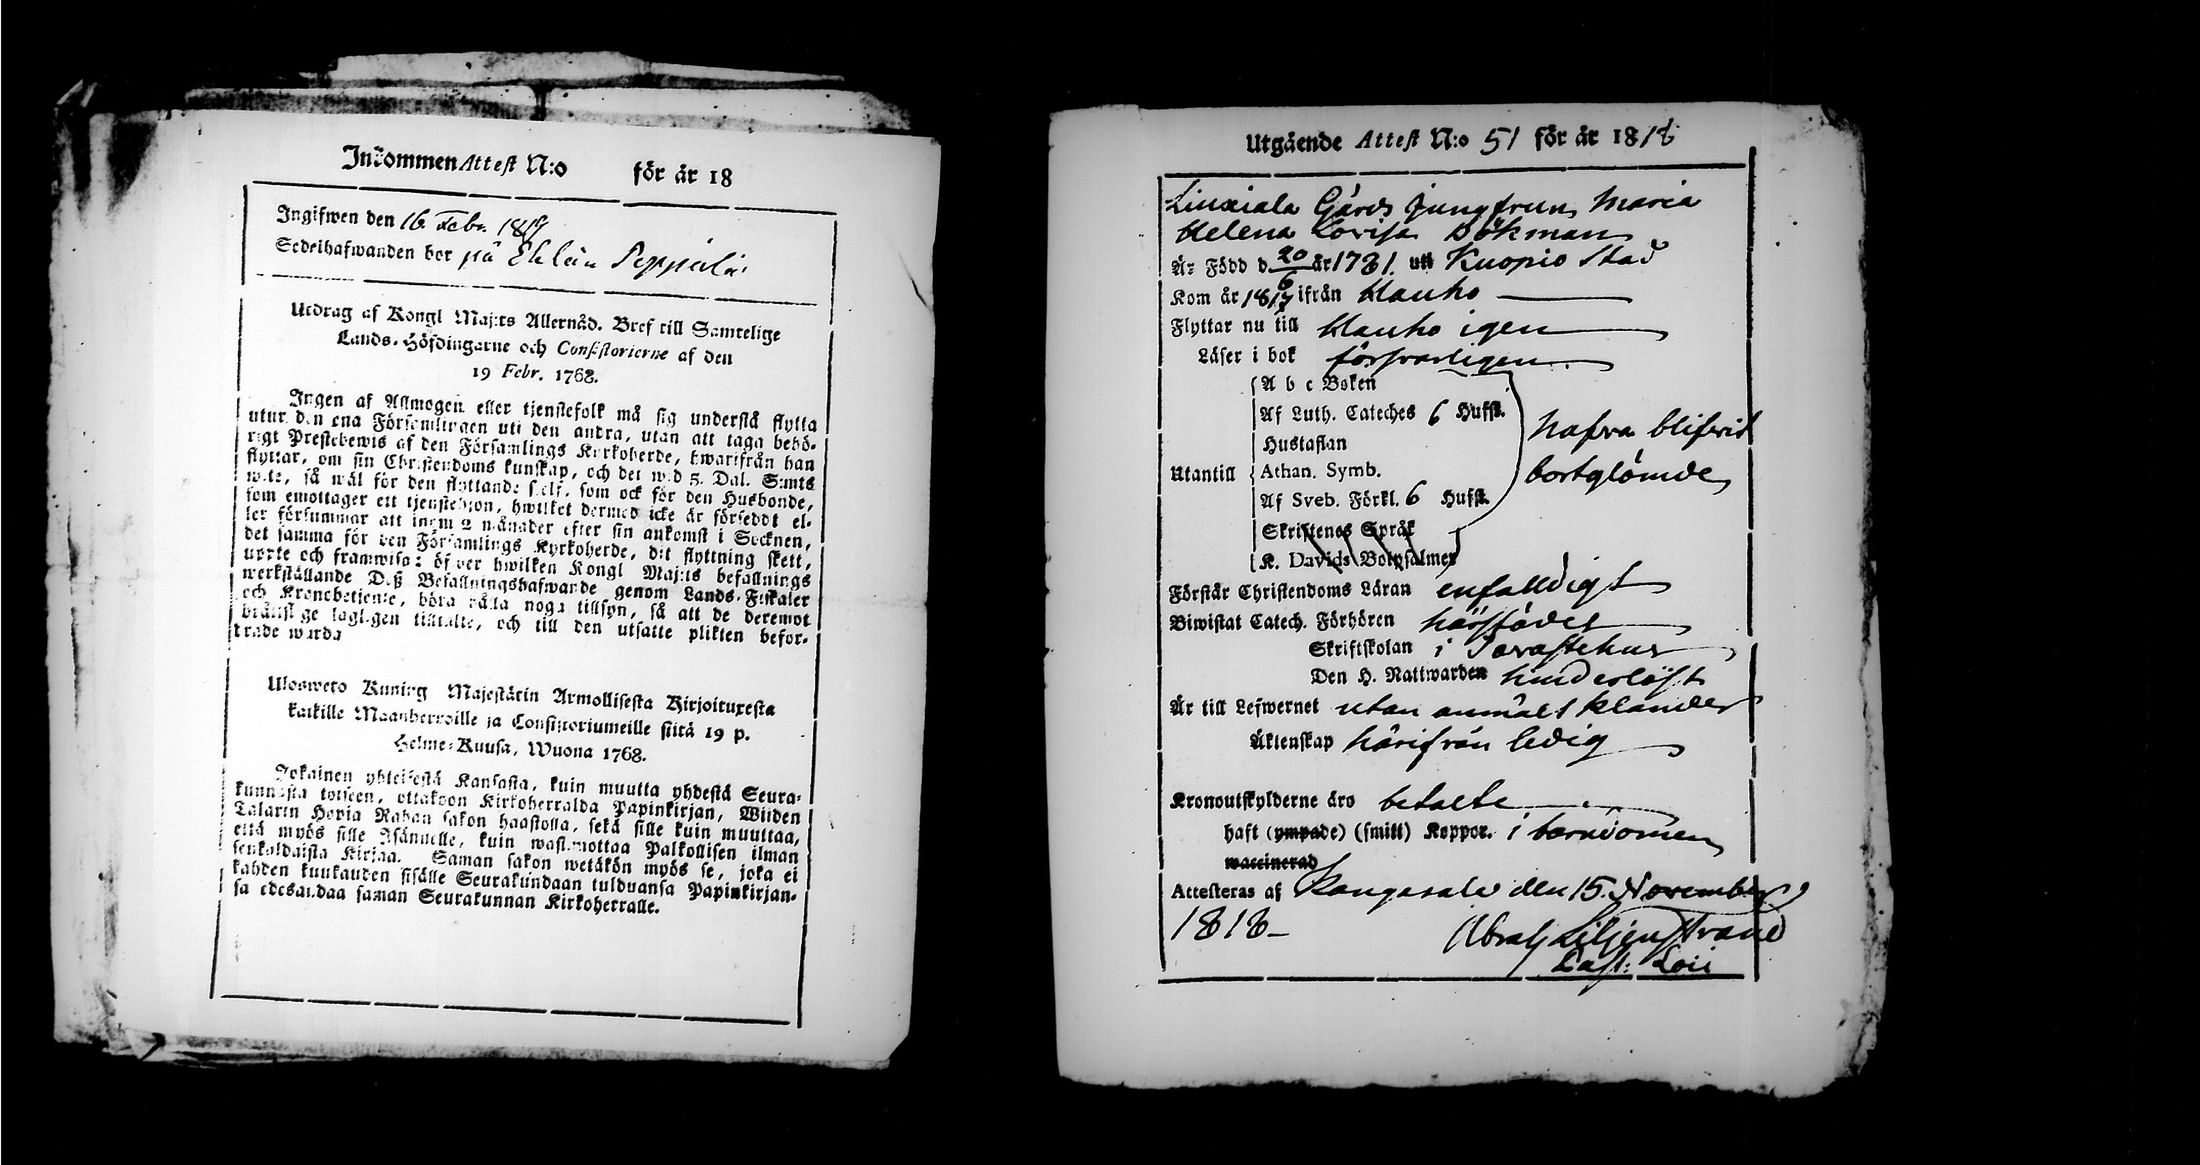 Inkommen Attest N:o för år 18
Ingifwen den 16 Febr. 1819
Sedelhafwanden bor på
Utdrag af Kongl Maj:ts Allernåd. Bref till Samtelige
Lands-Höfdingarne och Consistorierne af den
19 Febr. 1768.
Ingen af Allmogen eller tjenstefolk må sig understå flytta
utur den ena Församlingen uti den andra, utan att taga behö-
rigt Prestebewis af den Församlings Kyrkoherde, hwarifrån han
flyttar, om sin Christendoms kunskap, och det wid 5. Dal. S:mts
wite, så wäl för den flyttande self, som ock för den Husbonde,
som emottager ett tjenstehjon, hwilket dermed icke är försedt el-
ler försummar att inom 2 månader efter sin ankomst i Socknen,
det samma för den Församlings Kyrkoherde, dit flyttning skett,
uppte och framwisa: öfwer hwilken Kongl Maj:ts befallnings
werkställande Deß Befallningshafwande genom Lands-Fiskaler
och Kronobetjente, böra hålla noga tillsyn, så att de deremot
brättslige lagligen tilltalte, och till den utsatte plikten befor-
drade warda
Ulosweto Kuning Majestätin Armollisesta Kirjoituxesta
kaikille Maanherroille ja Consistoriumeille siitä 19 p.
Helme-Kuusa, Wuona 1768.
Jokainen yhteisestä Kansasta, kuin muutta yhdestä Seura-
kunnasta toiseen, ottakoon Kirkoherralda Papinkirjan, Wiiden
Talarin Hopia Rahan sakon haastolla, sekä sille kuin muuttaa,
että myös sille Isännelle, kuin wastanottaa Palkollisen ilman
senkaldaista Kirjaa. Saman sakon wetäkön myös se, joka ei
kahden kuukauden sisälle Seurakundaan tulduansa Papinkirjan-
sa edesandaa saman Seurakunnan Kirkoherralle.
Utgående Attest N:o 51 för år 1818
Liuxiala Gårds Jungfrun Maria
Helena Lovisa Bökman
Är Född d. 20/6 år 1781. uti Kuopio Stad
Kom år 1817 ifrån Hauho
Flyttar nu till Hauho igen
Läser i bok försvarligen
A b c Boken
Af Luth. Cateches 6 Hufst.
Hustaflan
Utantill Athan. Symb.
Af Sveb. Förkl. 6 Hufst.
Skriftenes Språk
K. Davids Botpsalmer
hafva blifvit
bortglömde
Förstår Christendoms Läran enfaldigt
Biwistat Catech. Förhören härstädes
Skriftskolan i Tavastehus
Den H. Nattwarden hinderlöst
Är till Lefwernet utan anmält klander
Äktenskap härifrån ledig
Kronoutskylderne äro betalte
haft (ympade) (smitt) Koppor. i barndomen
waccinerad
Attesteras af Kangasala den 15. November
1818
Abrah Liljenstrand